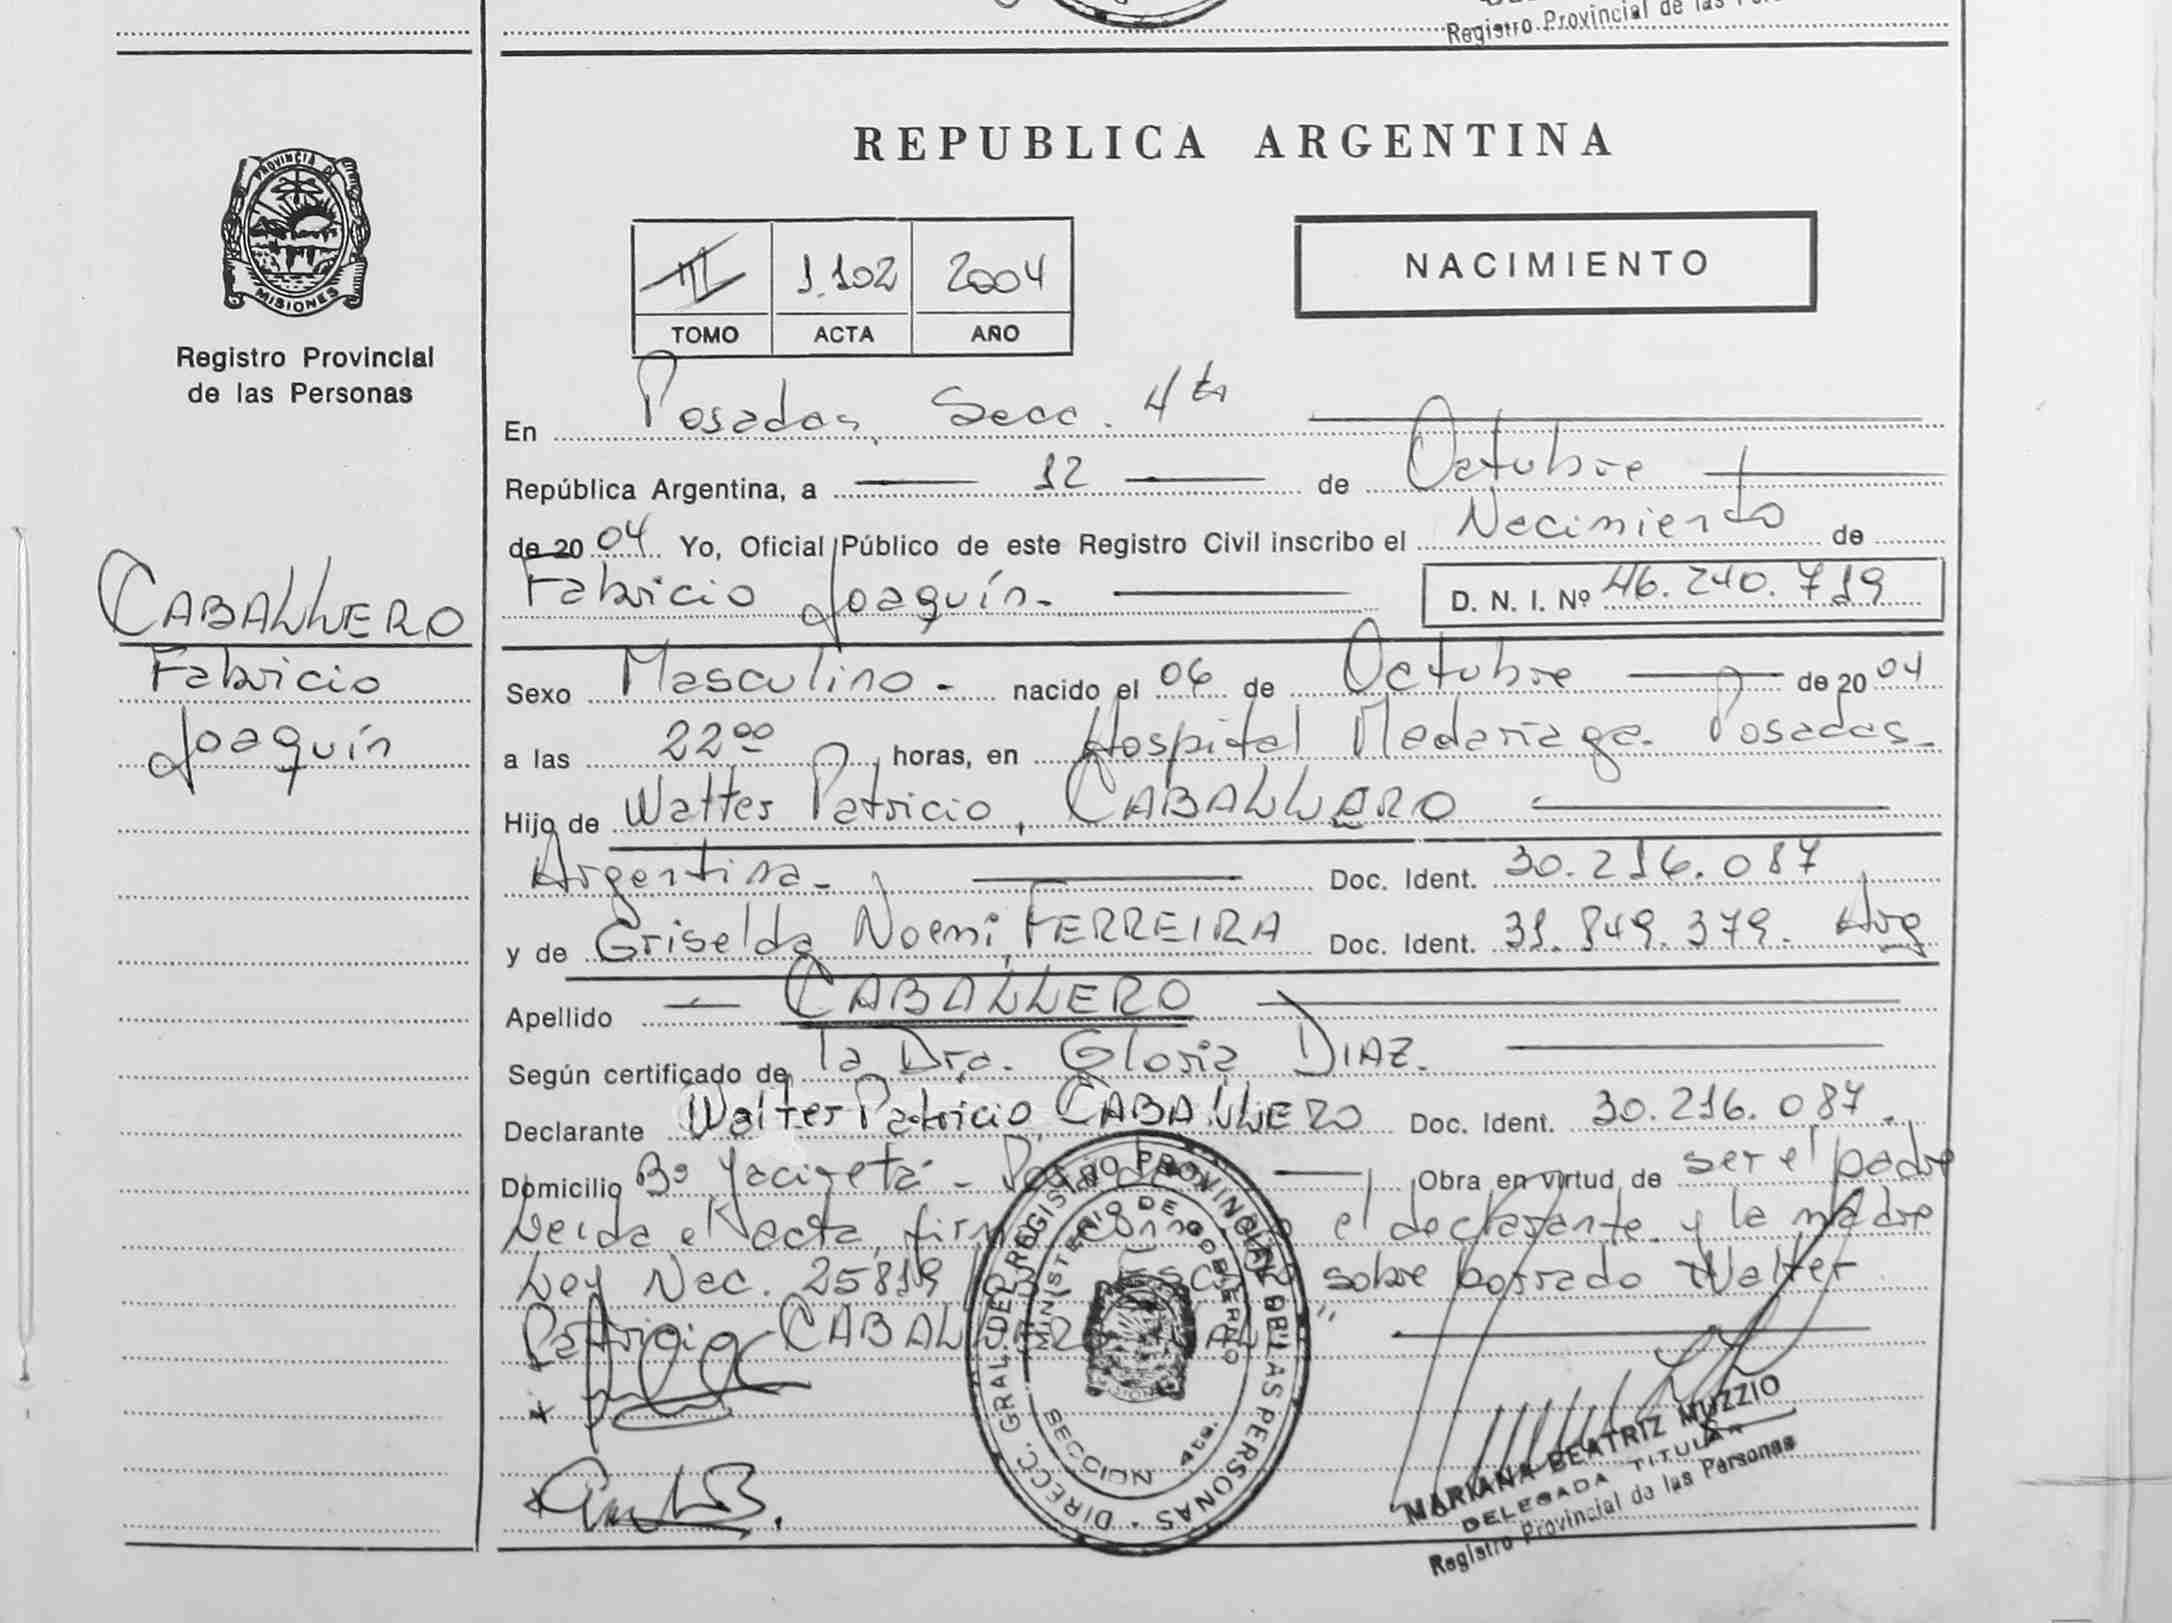 Registro Provincial de las
REPUBLICA ARGENTINA
PROVINCIA DE
MISIONES
Registro Provincial
de las Personas
1.102 2004
TOMO ACTA AÑO
NACIMIENTO
En Posadas, Secc. 4ta
República Argentina, a 12 de Octubre
de 2004 Yo, Oficial Público de este Registro Civil inscribo el Nacimiento de
Fabricio Joaquín.- D. N. I. Nº 46.240.719
CABALLERO
Fabricio
Joaquín
Sexo Masculino.- nacido el 06 de Octubre de 2004
a las 22⁰⁰ horas, en Hospital Madariaga- Posadas-
Hijo de Walter Patricio, CABALLERO
Argentina- Doc. Ident. 30.216.087
y de Griselda Noemi, FERREIRA Doc. Ident. 31.849.379. Arg
Apellido CABALLERO
Según certificado de la Dra. Gloria DIAZ.
Declarante Walter Patricio, CABALLERO Doc. Ident. 30.216.087.
Domicilio Bº Yaciretá - Obra en virtud de ser el padre
Leida el acta, el declarante y la madre
Ley Nac. 25819 sobre borrado Walter
Patricio CABALLERO
DIRECC. GRAL. DEL REGISTRO PROVINCIAL DE LAS PERSONAS
MINISTERIO DE GOBIERNO
SECCION 4ta.
MARIANA BEATRIZ MUZZIO
DELEGADA TITULAR
Registro Provincial de las Personas